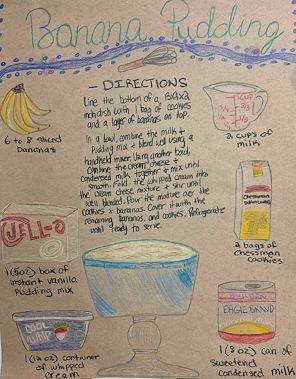 Banana Pudding
- DIRECTIONS
Line the bottom of a 13x9x2
inch dish with 1 bag of cookies
and a layer of bananas on top.
In a bowl, combine the milk &
pudding mix & blend well using a
handheld mixer. Using another bowl,
combine the cream cheese &
condensed milk together & mix until
smooth. Fold the whipped cream into
the cream cheese mixture & stir until
well blended. Pour the mixture over the
cookies & bananas. Cover it with the
remaining bananas, and cookies. Refrigerate
until ready to serve.
6 to 8 sliced
bananas
1 CUP
2 cups of
milk
JELL-O
1 (5oz) box of
instant vanilla
pudding mix
Chessmen
2 bags of
chessmen
cookies
COOL
WHIP
1 (12 oz) container
of whipped
cream
EAGLE BRAND
1 (8 oz) can of
sweetened
condensed milk